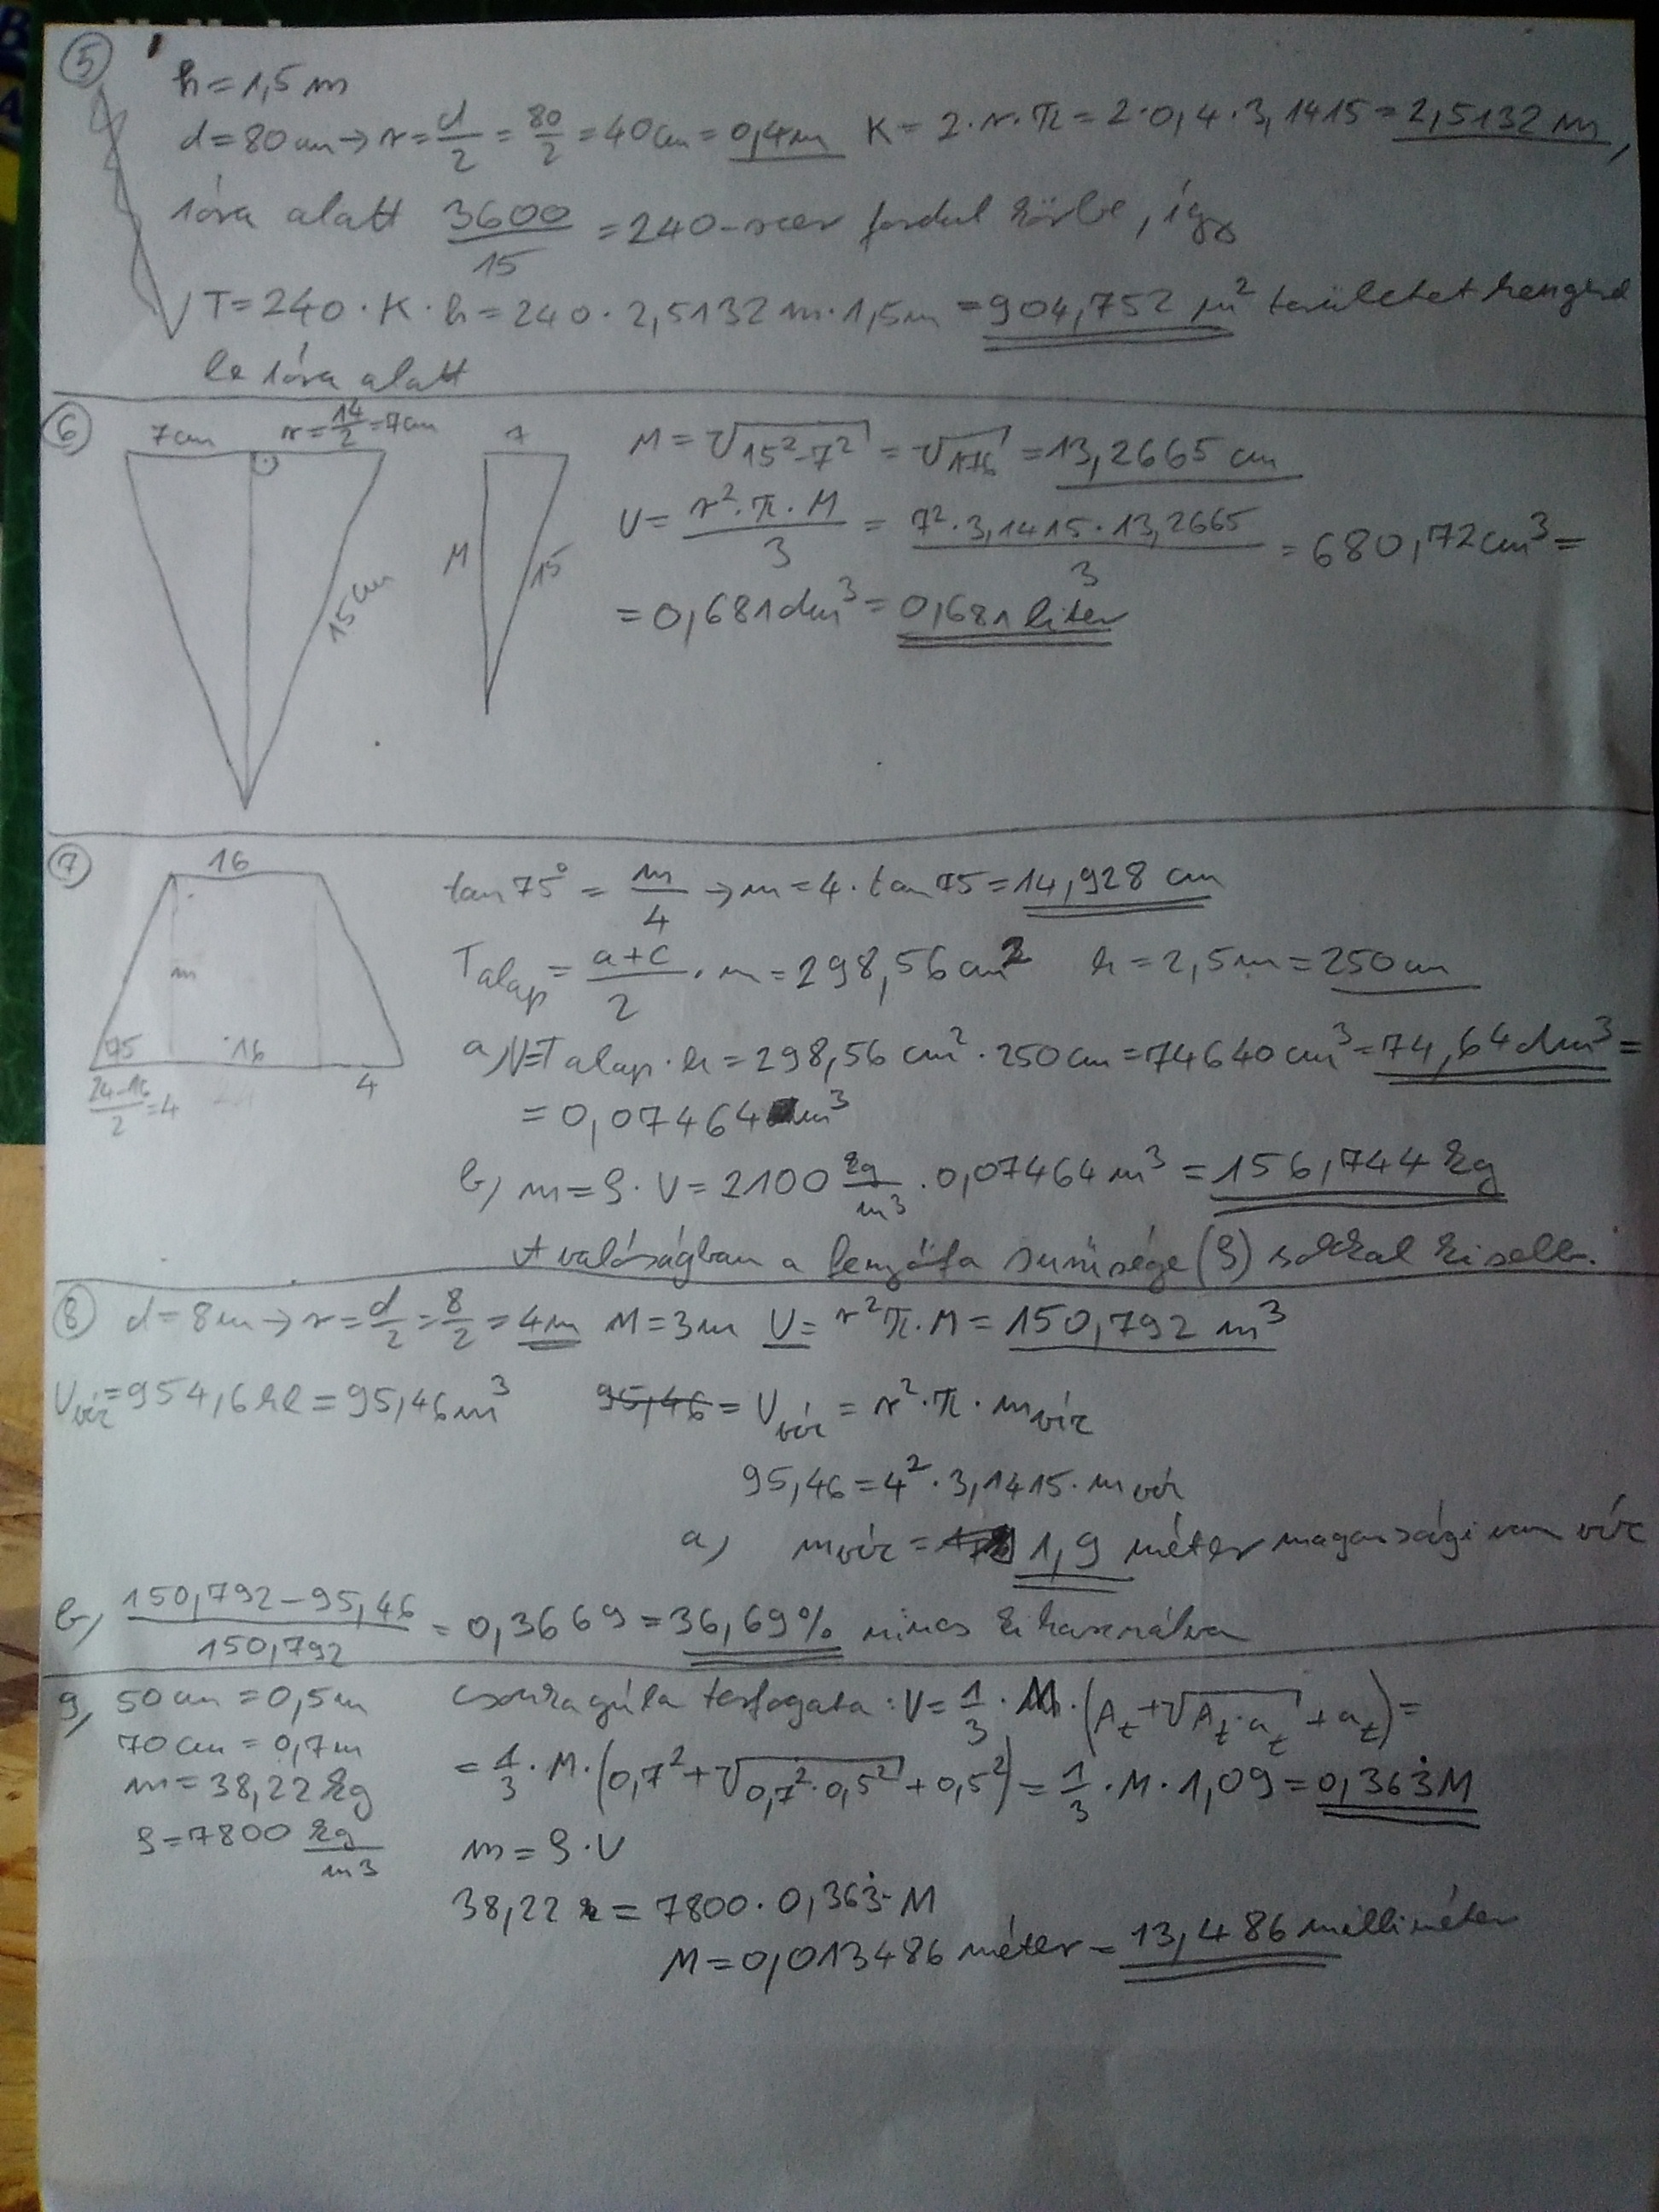 ⑤ h = 1,5 m
d = 80 cm → r = d/2 = 80/2 = 40 cm = 0,4 m K = 2·r·π = 2·0,4·3,1415 = 2,5132 m,
1 óra alatt 3600/15 = 240-szer fordul körbe, így
T = 240·K·h = 240·2,5132 m·1,5 m = 904,752 m² területet hengerel
le 1 óra alatt
⑥ 7 cm r = 14/2 = 7 cm 7
M 15 15 cm
M = √(15²-7²) = √176 = 13,2665 cm
V = r²·π·M/3 = 7²·3,1415·13,2665/3 = 680,72 cm³ =
= 0,681 dm³ = 0,681 liter
⑦ 16
m
75 16
24-16/2 = 4 4
tan 75° = m/4 → m = 4·tan 75 = 14,928 cm
Talap = a+c/2 · m = 298,56 cm² h = 2,5 m = 250 cm
a, V = Talap·h = 298,56 cm²·250 cm = 74640 cm³ = 74,64 dm³ =
= 0,07464 m³
b, m = ρ·V = 2100 kg/m³ · 0,07464 m³ = 156,744 kg
A valóságban a fenyőfa sűrűsége (ρ) sokkal kisebb.
⑧ d = 8 m → r = d/2 = 8/2 = 4 m M = 3 m V = r²π·M = 150,792 m³
Vvíz = 954,6 hl = 95,46 m³ 95,46 = Vvíz = r²·π·mvíz
95,46 = 4²·3,1415·mvíz
a, mvíz = 1,9 méter magasságú van víz
b, 150,792-95,46/150,792 = 0,3669 = 36,69% nincs kihasználva
9, 50 cm = 0,5 m
70 cm = 0,7 m
m = 38,22 kg
ρ = 7800 kg/m³
Csonkagúla térfogata: V = 1/3 · M·(At + √(At·at) + at) =
= 1/3 · M·(0,7² + √(0,7²·0,5²) + 0,5²) = 1/3 · M · 1,09 = 0,363̇ M
m = ρ·V
38,22 = 7800·0,363̇·M
M = 0,013486 méter = 13,486 milliméter